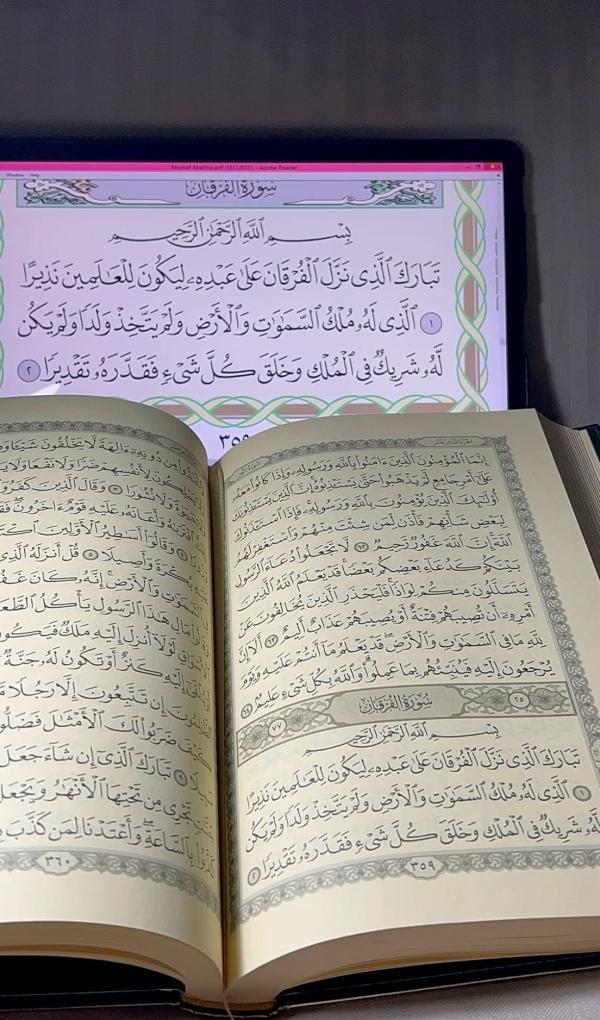 Mushaf-Madina.pdf (SECURED) - Adobe Reader
Window Help
سُورَةُ الفُرْقَانِ
بِسْمِ ٱللَّهِ ٱلرَّحْمَٰنِ ٱلرَّحِيمِ
تَبَارَكَ ٱلَّذِى نَزَّلَ ٱلْفُرْقَانَ عَلَىٰ عَبْدِهِۦ لِيَكُونَ لِلْعَٰلَمِينَ نَذِيرًا
١ ٱلَّذِى لَهُۥ مُلْكُ ٱلسَّمَٰوَٰتِ وَٱلْأَرْضِ وَلَمْ يَتَّخِذْ وَلَدًا وَلَمْ يَكُن
لَّهُۥ شَرِيكٌ فِى ٱلْمُلْكِ وَخَلَقَ كُلَّ شَىْءٍ فَقَدَّرَهُۥ تَقْدِيرًا ٢
٣٥٩
إِنَّمَا ٱلْمُؤْمِنُونَ ٱلَّذِينَ ءَامَنُوا۟ بِٱللَّهِ وَرَسُولِهِۦ وَإِذَا كَانُوا۟ مَعَهُۥ
عَلَىٰٓ أَمْرٍ جَامِعٍ لَّمْ يَذْهَبُوا۟ حَتَّىٰ يَسْتَـْٔذِنُوهُ إِنَّ ٱلَّذِينَ يَسْتَـْٔذِنُونَكَ
أُو۟لَٰٓئِكَ ٱلَّذِينَ يُؤْمِنُونَ بِٱللَّهِ وَرَسُولِهِۦ فَإِذَا ٱسْتَـْٔذَنُوكَ
لِبَعْضِ شَأْنِهِمْ فَأْذَن لِّمَن شِئْتَ مِنْهُمْ وَٱسْتَغْفِرْ لَهُمُ
ٱللَّهَ إِنَّ ٱللَّهَ غَفُورٌ رَّحِيمٌ ٦٢ لَّا تَجْعَلُوا۟ دُعَآءَ ٱلرَّسُولِ
بَيْنَكُمْ كَدُعَآءِ بَعْضِكُم بَعْضًا قَدْ يَعْلَمُ ٱللَّهُ ٱلَّذِينَ
يَتَسَلَّلُونَ مِنكُمْ لِوَاذًا فَلْيَحْذَرِ ٱلَّذِينَ يُخَالِفُونَ عَنْ
أَمْرِهِۦٓ أَن تُصِيبَهُمْ فِتْنَةٌ أَوْ يُصِيبَهُمْ عَذَابٌ أَلِيمٌ ٦٣ أَلَآ إِنَّ
لِلَّهِ مَا فِى ٱلسَّمَٰوَٰتِ وَٱلْأَرْضِ قَدْ يَعْلَمُ مَآ أَنتُمْ عَلَيْهِ وَيَوْمَ
يُرْجَعُونَ إِلَيْهِ فَيُنَبِّئُهُم بِمَا عَمِلُوا۟ وَٱللَّهُ بِكُلِّ شَىْءٍ عَلِيمٌ ٦٤
٢٥ سُورَةُ الفُرْقَانِ ٧٧
بِسْمِ ٱللَّهِ ٱلرَّحْمَٰنِ ٱلرَّحِيمِ
تَبَارَكَ ٱلَّذِى نَزَّلَ ٱلْفُرْقَانَ عَلَىٰ عَبْدِهِۦ لِيَكُونَ لِلْعَٰلَمِينَ نَذِيرًا
١ ٱلَّذِى لَهُۥ مُلْكُ ٱلسَّمَٰوَٰتِ وَٱلْأَرْضِ وَلَمْ يَتَّخِذْ وَلَدًا وَلَمْ يَكُن
لَّهُۥ شَرِيكٌ فِى ٱلْمُلْكِ وَخَلَقَ كُلَّ شَىْءٍ فَقَدَّرَهُۥ تَقْدِيرًا ٢
٣٥٩
مِن دُونِهِۦٓ ءَالِهَةً لَّا يَخْلُقُونَ شَيْـًٔا
يَمْلِكُونَ لِأَنفُسِهِمْ ضَرًّا وَلَا نَفْعًا وَلَا
وَلَا نُشُورًا ٣ وَقَالَ ٱلَّذِينَ كَفَرُوٓا۟
ٱفْتَرَىٰهُ وَأَعَانَهُۥ عَلَيْهِ قَوْمٌ ءَاخَرُونَ
وَقَالُوٓا۟ أَسَٰطِيرُ ٱلْأَوَّلِينَ
بُكْرَةً وَأَصِيلًا ٥ قُلْ أَنزَلَهُ ٱلَّذِى
ٱلسَّمَٰوَٰتِ وَٱلْأَرْضِ إِنَّهُۥ كَانَ
مَالِ هَٰذَا ٱلرَّسُولِ يَأْكُلُ
لَوْلَآ أُنزِلَ إِلَيْهِ مَلَكٌ فَيَكُونَ
إِلَيْهِ كَنزٌ أَوْ تَكُونُ لَهُۥ جَنَّةٌ
ٱلظَّٰلِمُونَ إِن تَتَّبِعُونَ إِلَّا رَجُلًا
كَيْفَ ضَرَبُوا۟ لَكَ ٱلْأَمْثَٰلَ
تَبَارَكَ ٱلَّذِىٓ إِن شَآءَ جَعَلَ
تَجْرِى مِن تَحْتِهَا ٱلْأَنْهَٰرُ وَيَجْعَل
بِٱلسَّاعَةِ وَأَعْتَدْنَا لِمَن كَذَّبَ
٣٦٠